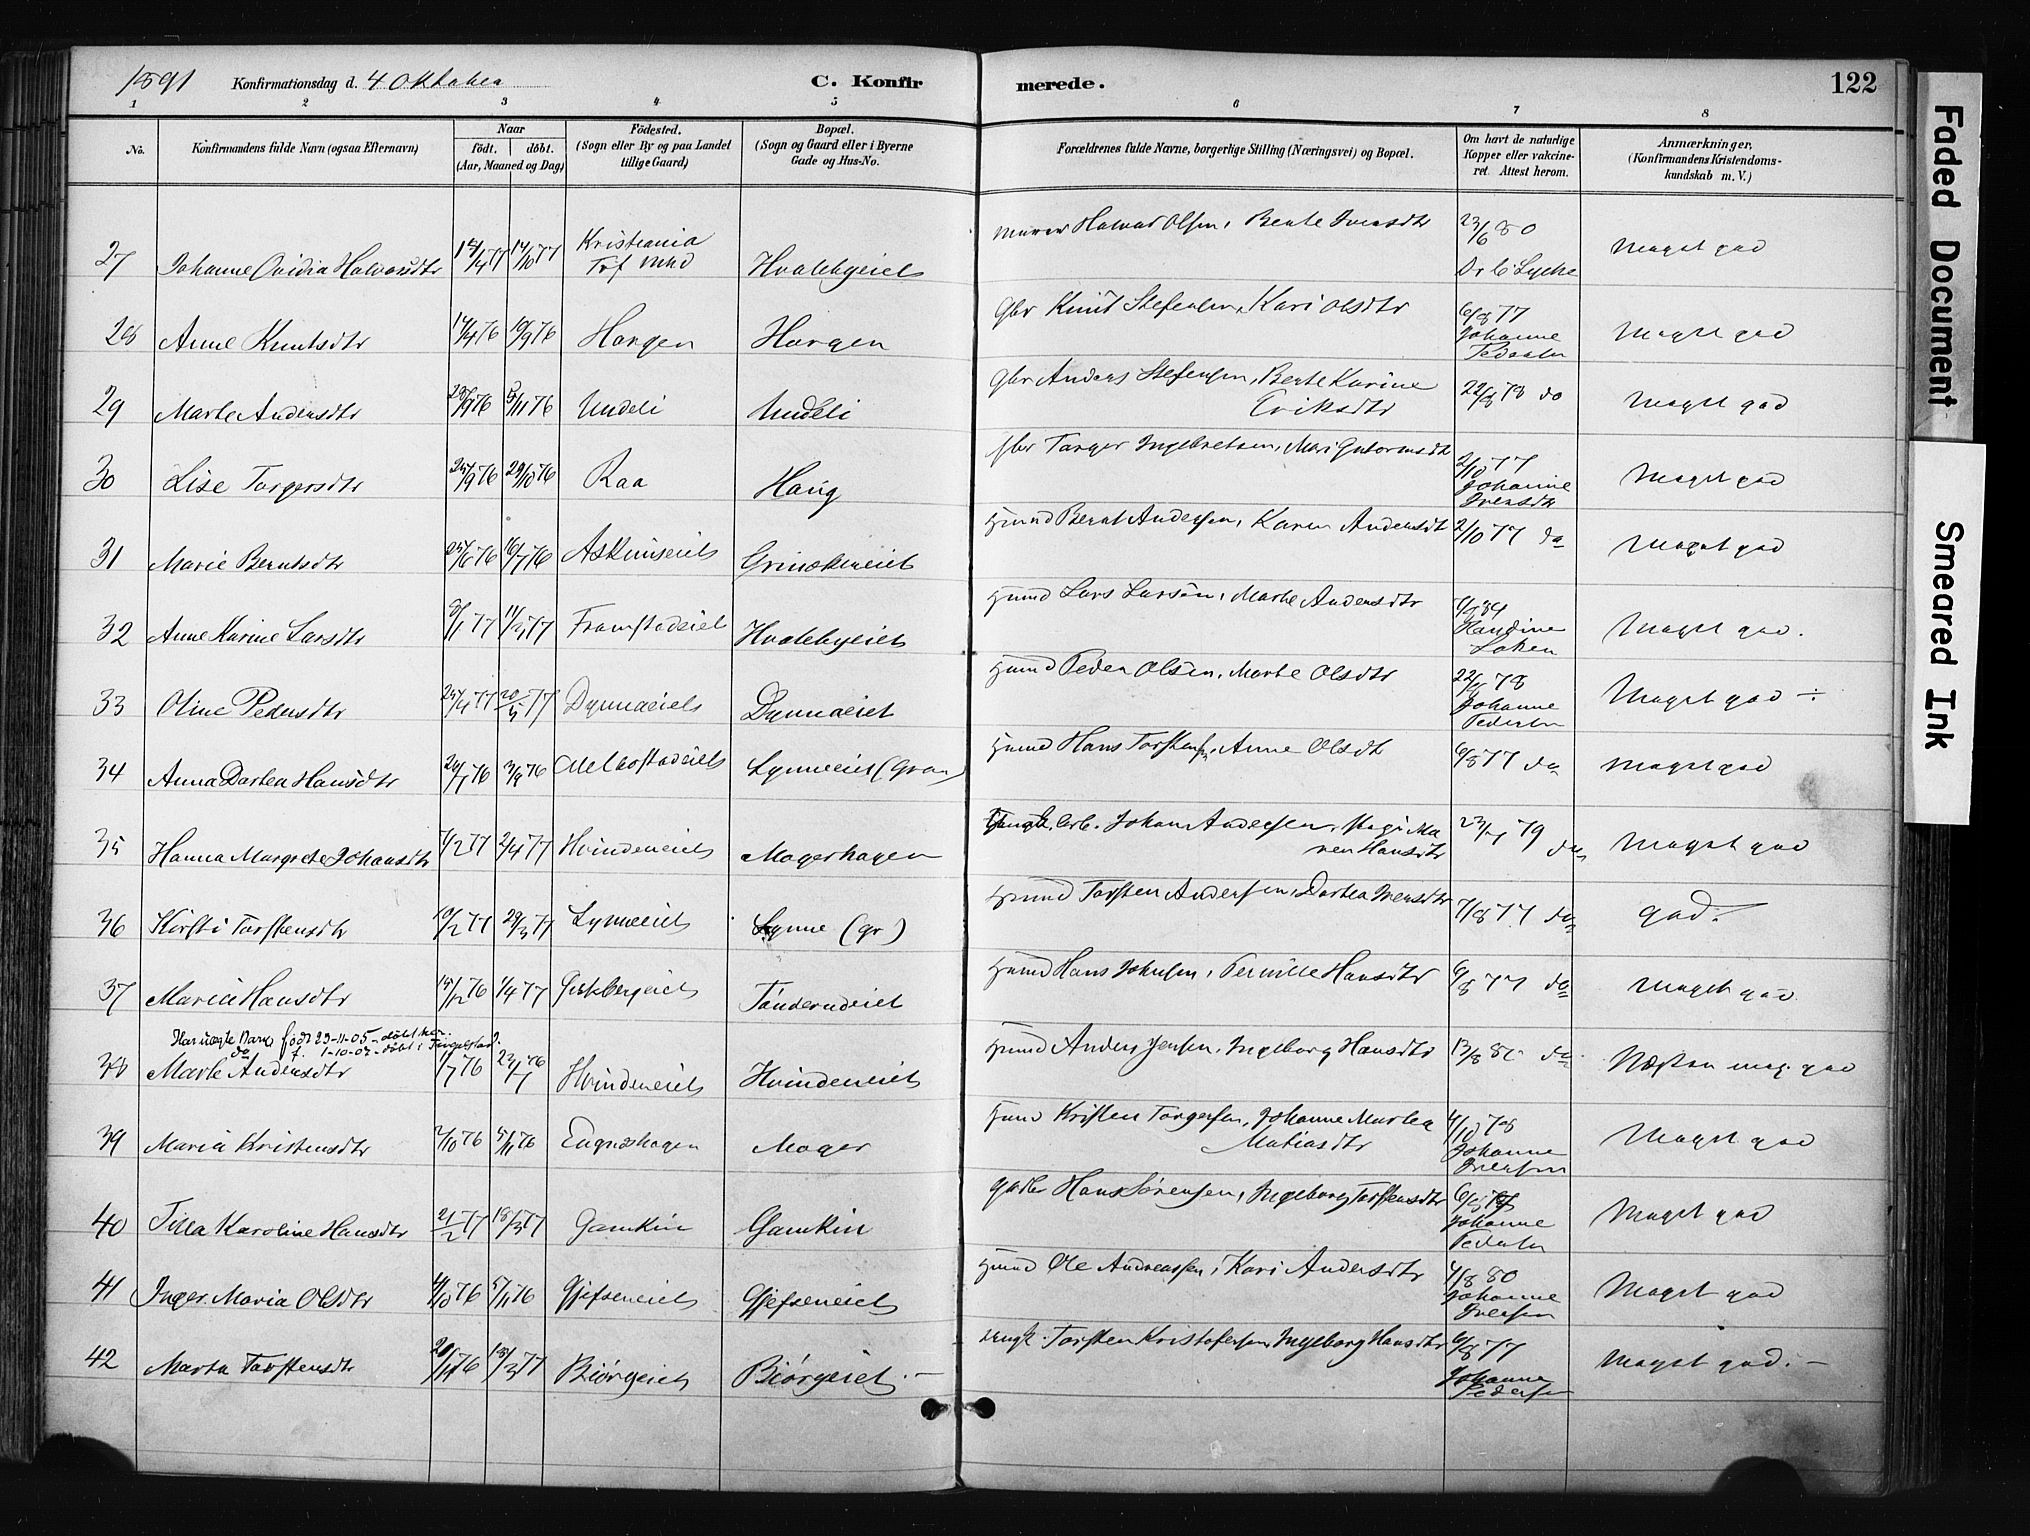 1891 Konfirmationsdag d. 4 Oktober C. Konfir
merede. 122
1 2 3 4 5 6 7 8
No. Konfirmandens fulde Navn (ogsaa Efternavn) Naar født. døbt. (Aar, Maaned og Dag) Födested. (Sogn eller By og paa Landet tillige Gaard) Bopæl. (Sogn og Gaard eller i Byerne Gade og Hus-No.
Forældrenes fulde Navne, borgerlige Stilling (Næringsvei) og Bopæl. Om havt de naturlige Kopper eller vakcineret. Attest herom. Anmærkninger, (Konfirmandens Kristendomskundskab m. V.)
27 Johanne Ovidia Halvorsdtr 14/10 77 Kristiania Hvalebyeiet Murer Halvor Olsen, Berte Iversdtr 23/6 80 Meget god
28 Anne Knutsdtr 17/4 76 10/9 76 Horgen Horgen Gbr Knud Stefensen, Kari Olsdtr 6/8 77 Johanne Pedersen Meget god
29 Marte Andersdtr 5/11 76 Undeli Undeli Gbr Anders Stefensen, Berte Karine Eriksdtr 22/8 78 do Meget god
30 Lise Torgersdtr 25/9 76 29/10 76 Raa Haug Torger Ingebretsen, Mari Gutormsdt 2/10 77 Johanne Iversdtr Meget god
31 Marie Berntsdtr 25/6 76 16/7 76 Askimseiet Grinakereiet Hmnd Bernt Andersen, Karen Andersdt 2/10 77 do Meget god
32 Anne Karine Larsdtr 8/1 77 11/3 77 Framstadeiet Hvalebyeiet Hmnd Lars Larsen, Marte Andersdtr Meget god.
33 Oline Pedersdtr 25/4 77 20/5 77 Dynnaeiet Dynnaeiet Hmnd Peder Olsen, Marte Olsdtr 22/8 78 Johanne Pedersen Meget god
34 Anna Dortea Hansdtr 3/9 76 Melbostadeiet Lynneeiet (Gran) Hmnd Hans Torstensen, Anne Olsdt 6/8 77 do Meget god
35 Hanna Margrete Johansdtr 7/2 77 2/4 77 Hvindeneiet Mogerhagen Arb. Johan Andersen, Maren Hansdtr 79 do Meget god
36 Kirsti Torstensdtr 10/2 77 29/3 77 Lynneeiet Lynne (gr) Hmnd Torsten Andersen, Dortea Iversdtr 7/8 77 do god.
37 Maria Hansdtr 15/12 76 1/4 77 Gjskbergeiet Tønderudeiet Hmnd Hans Johnsen, Pernille Hansdtr 6/8 77 do Meget god
Har uægte Barn født 29-11-05 - døbt her.
do f. 1-10-07 - døbt i Tingelstad.
38 Marte Andersdtr 1/7 76 23/7 76 Hvindeneiet Hvindeneiet Hmnd Anders Jensen, Ingeborg Hansdtr do Næsten meg. god
39 Maria Kristensdtr 2/10 76 5/11 76 Engneshagen Moger Hmnd Kristen Torgersen, Johanne Martea Matiasdtr 4/10 78 Johanne Iversen Meget god
40 Tilla Karoline Hansdtr 21/2 77 18/3 77 Gamkin Gamkin Hans Sørensen, Ingeborg Torstensdtr Johanne Pedersen Meget god
41 Inger Maria Olsdtr 4/10 76 5/11 76 Gjefseneiet Gjefseneiet Hmnd Ole Andreassen, Kari Andersdtr 4/8 80 Johanne Iversen Meget god
42 Marta Torstensdtr 20/11 76 18/3 77 Biørgeiet Biørgeiet. Torsten Kristofersen, Ingeborg Hansdtr 6/8 77 Johanne Pedersen Meget god.
Faded Document
Smeared Ink